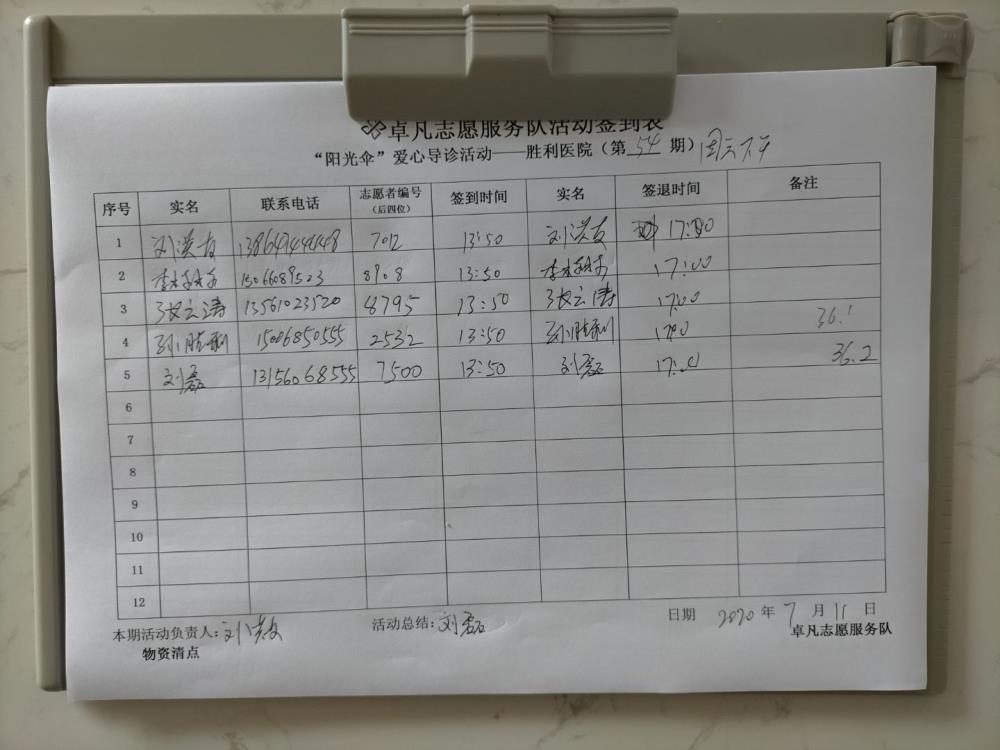 卓凡志愿服务队活动签到表
“阳光伞”爱心导诊活动——胜利医院（第 54 期）周六下午
序号 实名 联系电话 志愿者编号（后四位） 签到时间 实名 签退时间 备注
1 刘洪友 7012 13:50 刘洪友 17:00
2 15066089523 8908 13:50 17:00
3 张云涛 13561023520 8795 13:50 张云涛 17:00
4 孙胜利 15006850555 2532 13:50 孙胜利 17:00 36.1
5 刘磊 13156068555 7500 13:50 刘磊 17:01 36.2
6
7
8
9
10
11
12
本期活动负责人：刘洪友 活动总结：刘磊 日期 2020 年 7 月 11 日
物资清点 卓凡志愿服务队